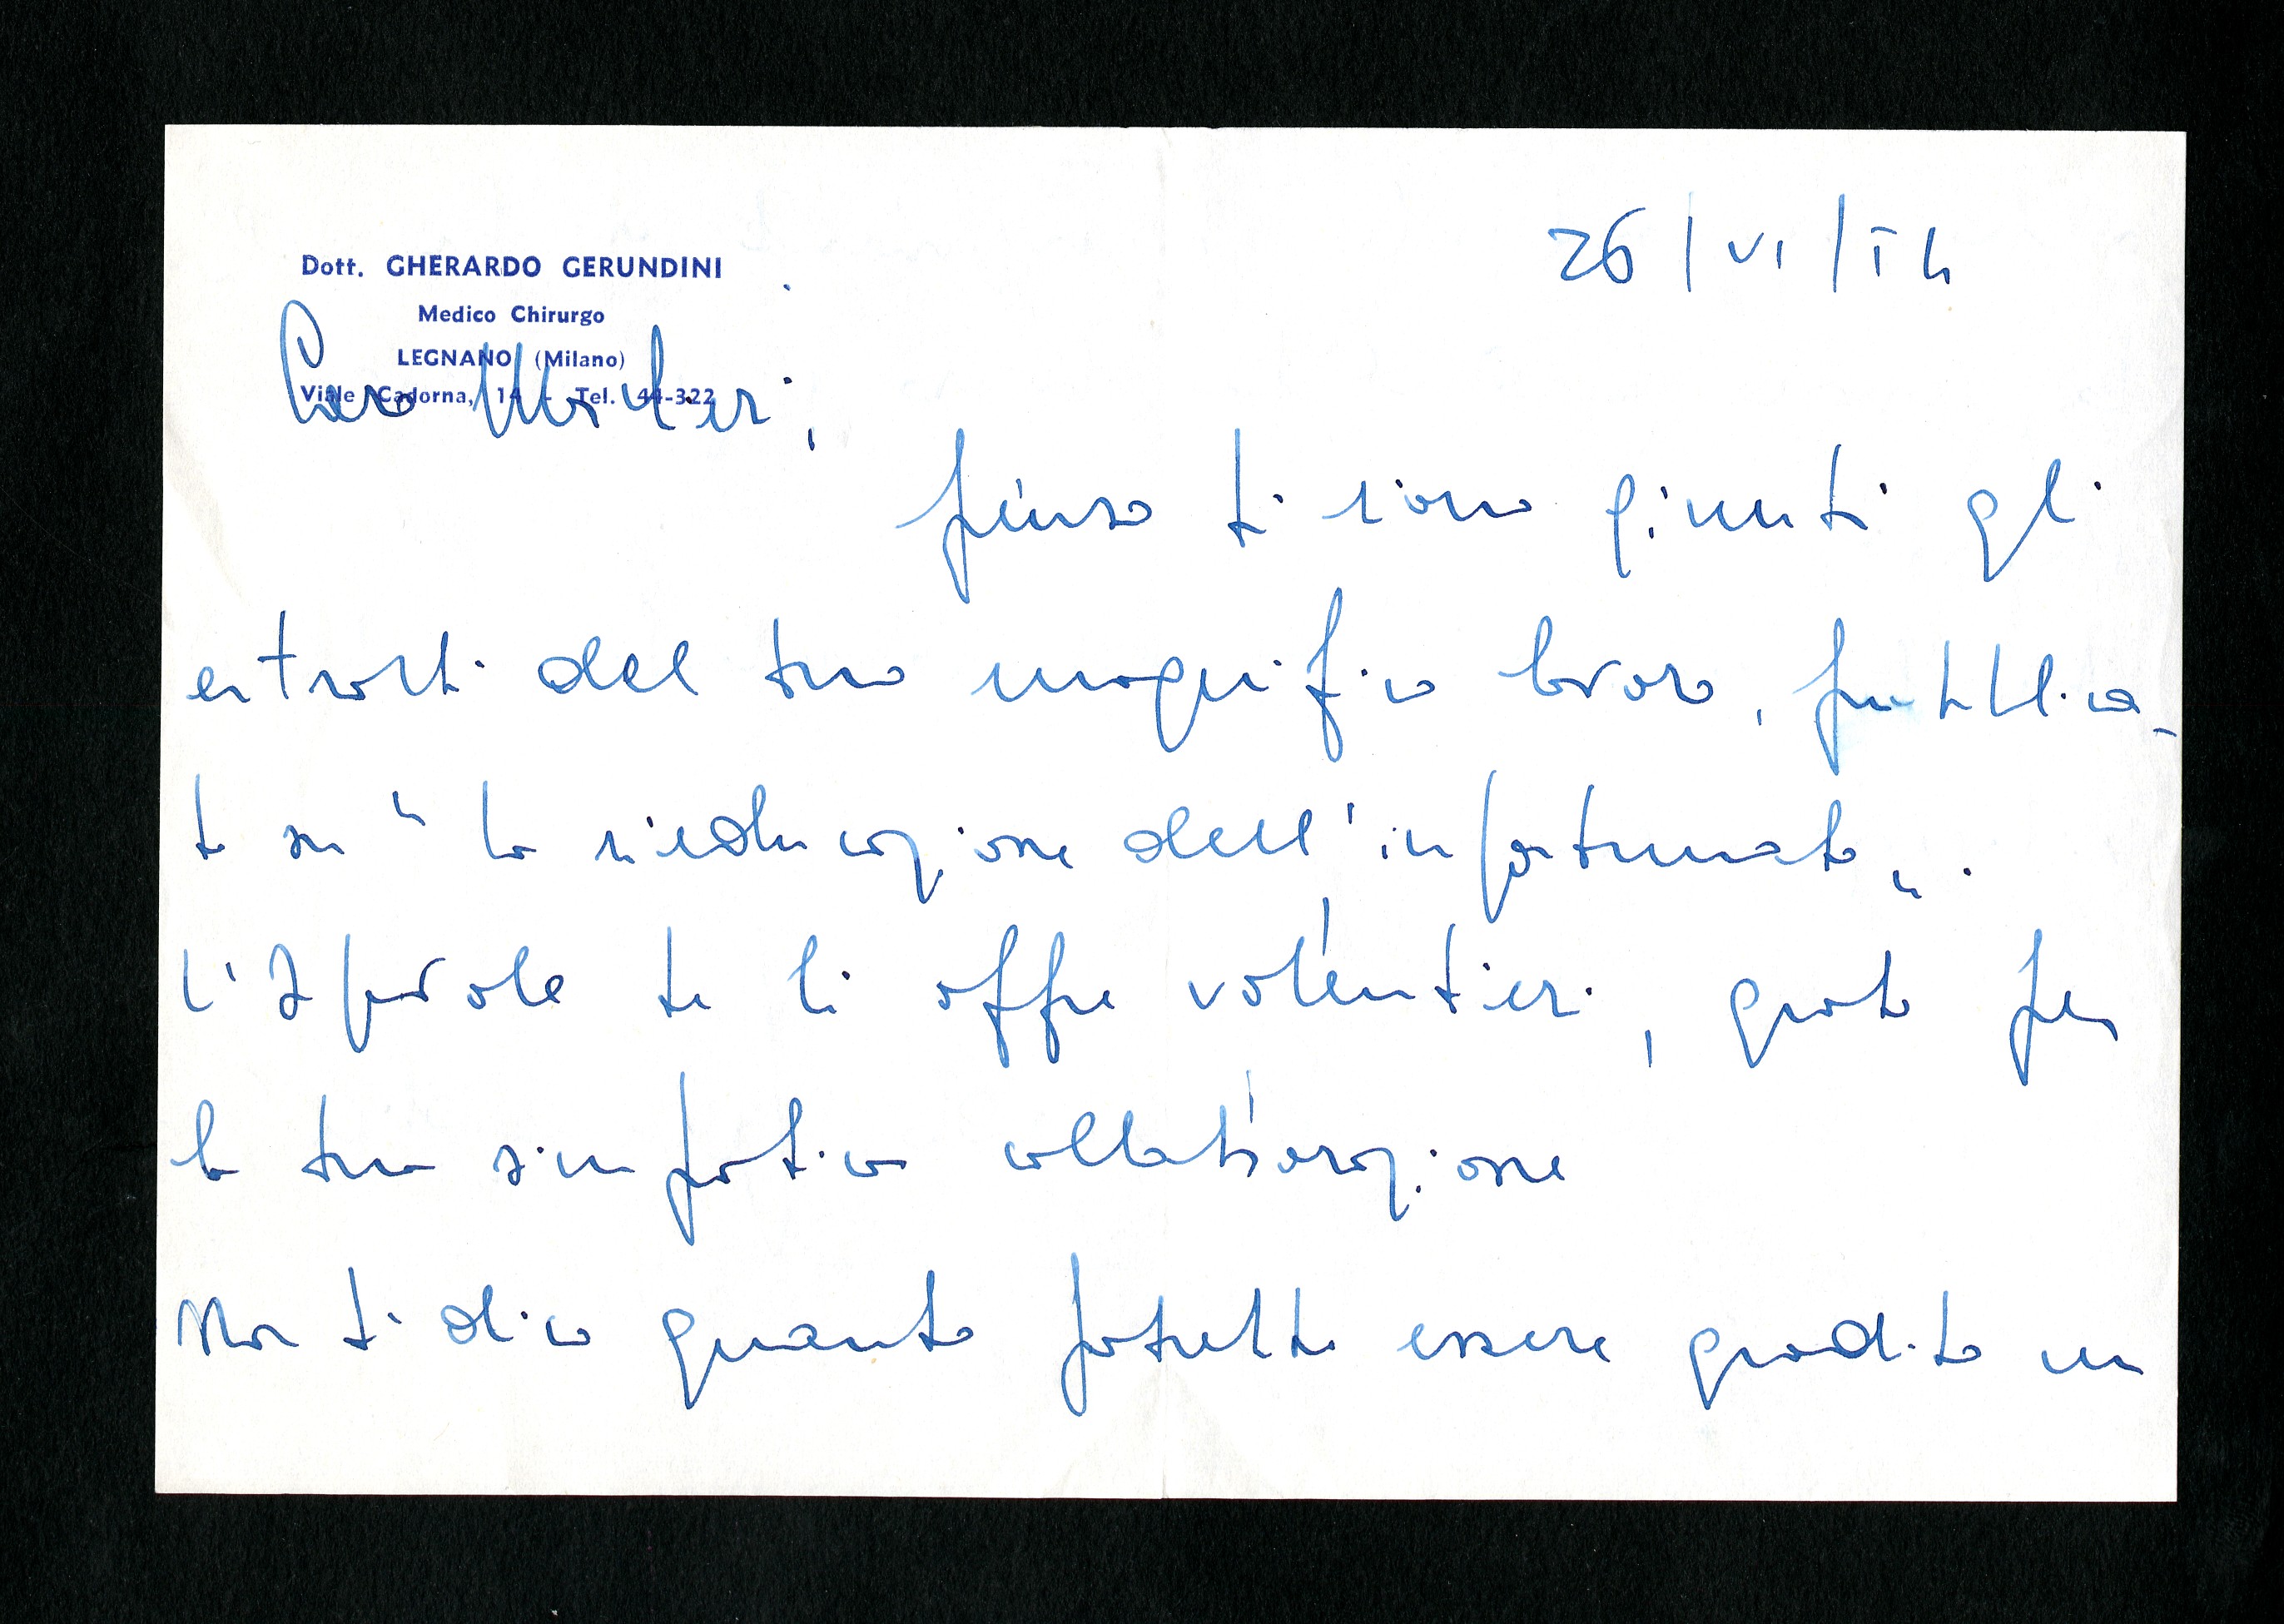 Dott. GHERARDO GERUNDINI
Medico Chirurgo
LEGNANO (Milano)
Viale Cadorna, 14 - Tel. 44-322
26/VI/54
Caro
penso ti siano giunti gli
estratti del tuo magnifico lavoro, pubblica-
to su "La rieducazione dell'infortunato".
L' te li offre volentieri, grato per
la tua simpatica collaborazione
Non ti dico quanto potrebbe essere gradito un